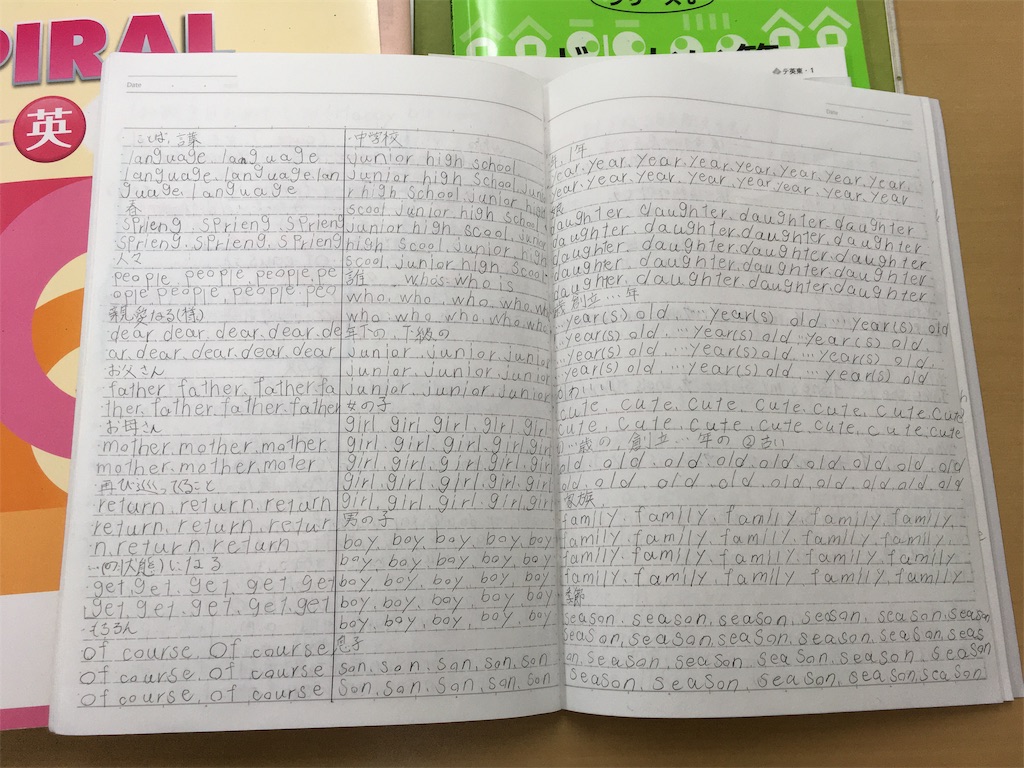 PIRAL
英
シリーズ
テ英東・1
Date
ことば, 言葉
language. language
language. language. lan
guage. language
春
sprieng. sprieng. sprieng
sprieng. sprieng. sprieng
人々
people. people. people. pe
ople. people. people. peo
親愛なる(様)
dear. dear. dear. dear. de
ar. dear. dear. dear. dear
お父さん
father. father. father. fa
ther. father. father. father
お母さん
mother. mother. mother.
mother. mother. mater
再び巡ってること
return. return. return
return. return. retur
n. return. return
…(の状態)になる
get. get. get. get. get
get. get. get. get. get
もちろん
Of course. Of course.
Of course. Of course
Of course. Of course
中学校
junior high school
junior high school. jun
r high school. junior hi
scool. junior high school
junior high scool. junior
high scool. junior, high
scool. junior high scool
誰 who's who is
who. who. who. who. who
who. who. who. who. who
年下の, 下級の
junior. junior. junior
junior. junior. junior
junior. junior. junior
女の子
girl. girl. girl. girl. girl
girl. girl. girl. girl. girl
girl. girl. girl. girl. girl
girl. girl. girl. girl. girl
男の子
boy. boy. boy. boy. boy
boy. boy. boy. boy. boy
boy. boy. boy. boy. boy
boy. boy. boy. boy. boy
boy. boy. boy. boy. boy
息子
son. son. son. son. son
son. son. son. son. son
年, 1年
ear. year. year. year. year. year. year. year.
ear. year. year. year. year. year. year. year
娘
aughter. daughter. daughter. daughter
daughter. daughter. daughter. daughter
daughter. daughter. daughter. daughter
daugher. daughter. daughter. daughter
daughter. daughter. daughter. daughter
歳 創立…年
…year(s) old. …year(s) old. …year(s) old
…year(s) old. …year(s) old. …year(s) old.
…year(s) old. …year(s) old. …year(s) old.
…year(s) old. …year(s) old. …year(s) old
かわいい
cute. cute. cute. cute. cute. cute. cute
cute. cute. cute. cute. cute. cute. cute
…歳の 創立…年の ②古い
old. old. old. old. old. old. old. old
old. old. old. old. old. old. old. old
家族
family. family. family. family. family.
family. family. family. family. family
family. family. family. family. family
family. family. family. family. family
季節
season. season. season. season. season. season
season. season. season. season. season. seas
on. season. season. season. season. season
season. season. season. season. season